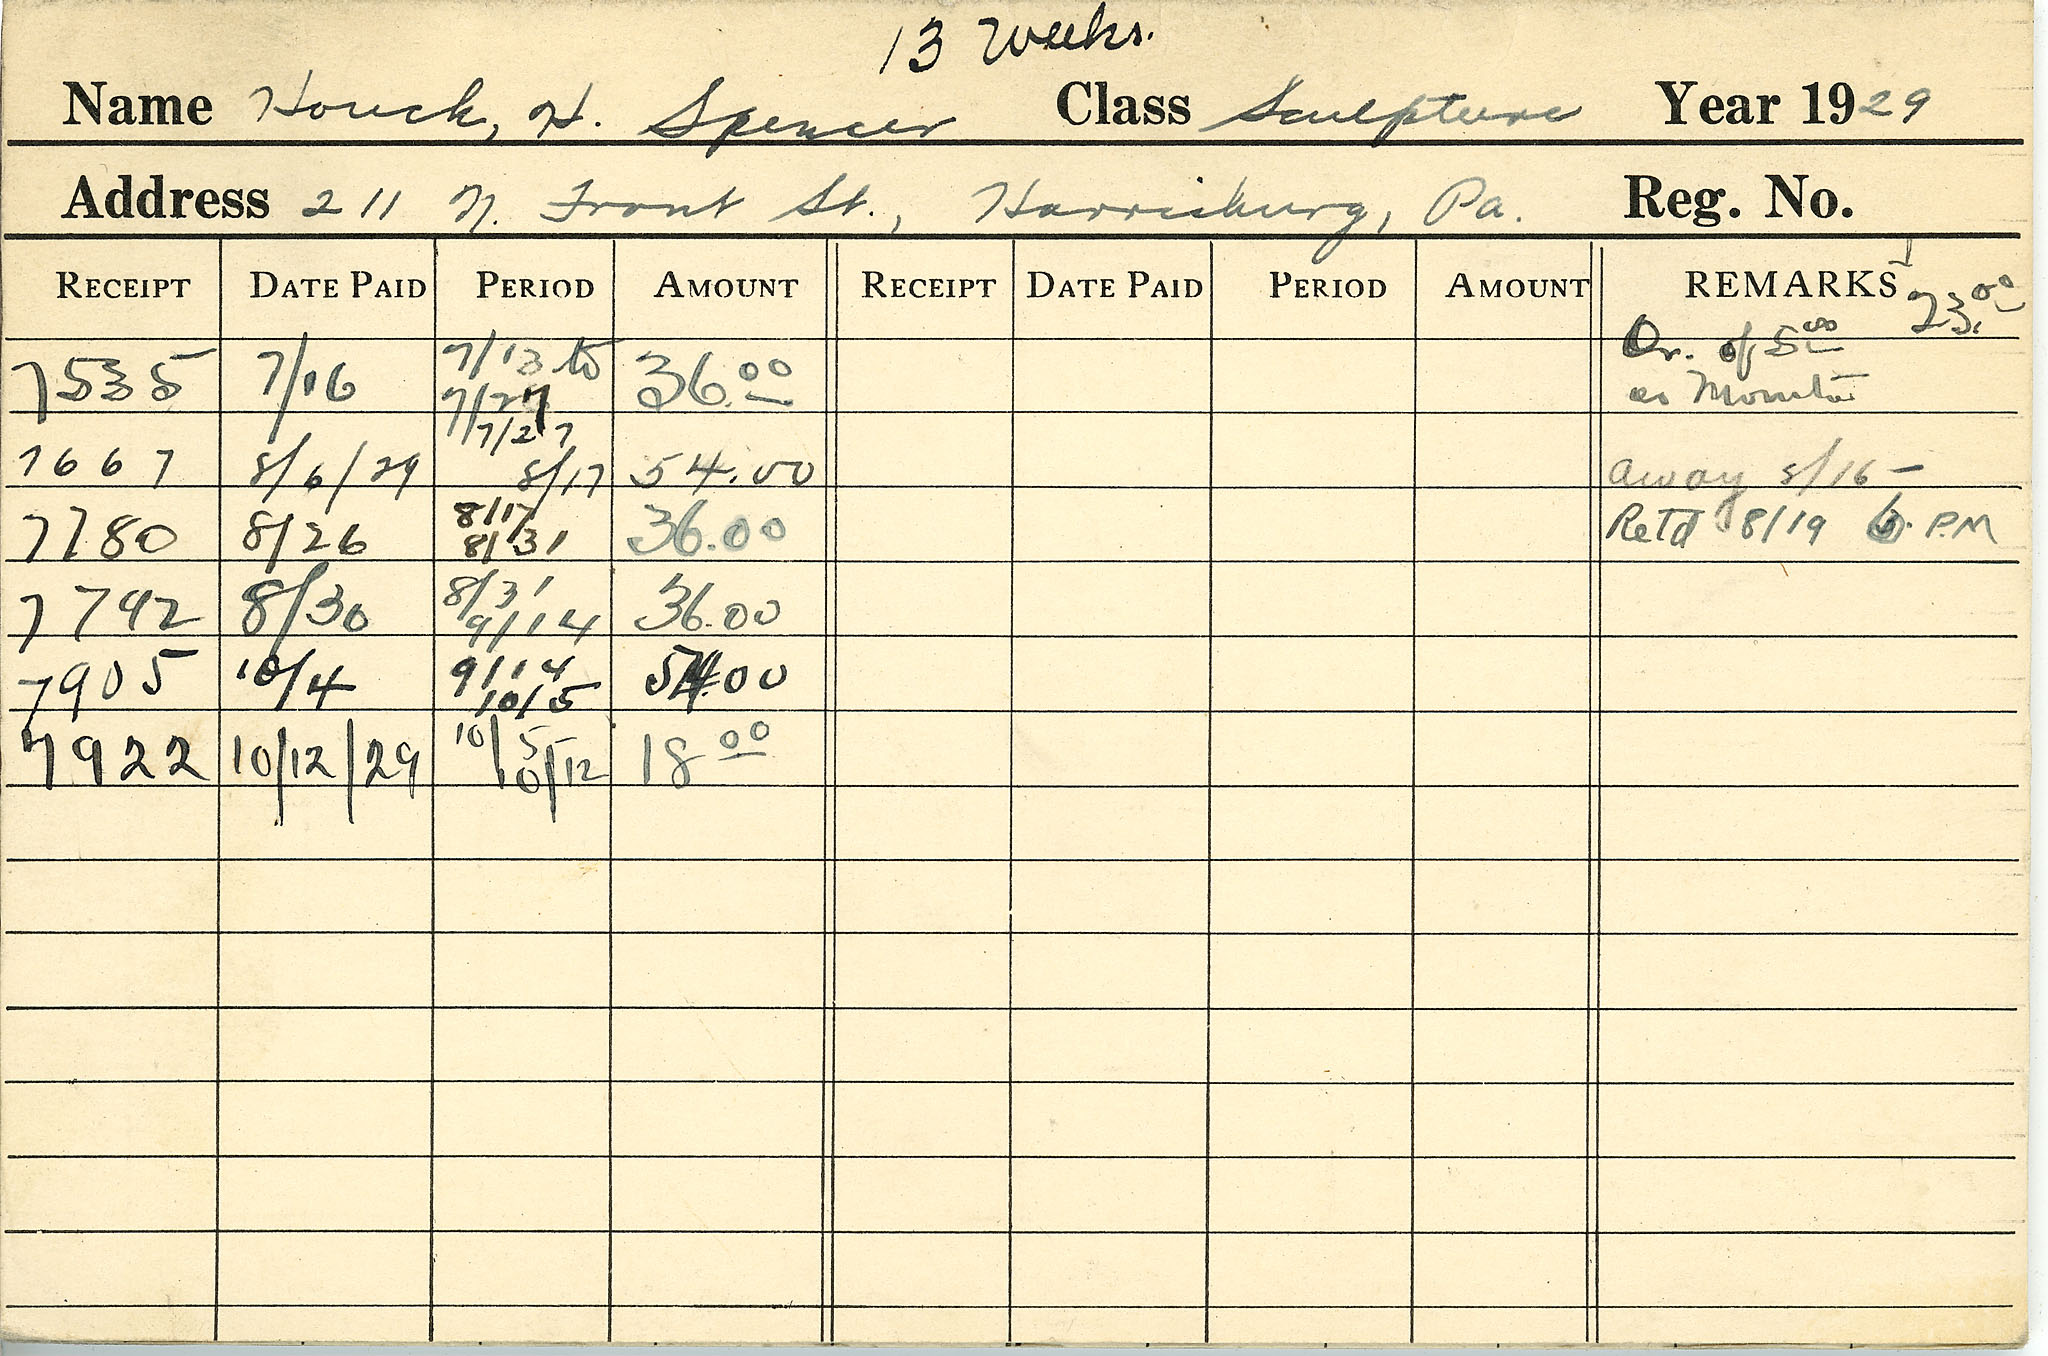 13 Weeks.
Name Houck, H. Spencer Class Sculpture Year 1929
Address 211 N. Front St., Harrisburg, Pa. Reg. No.
RECEIPT DATE PAID PERIOD AMOUNT RECEIPT DATE PAID PERIOD AMOUNT REMARKS
23.00
7535 7/16 7/13 to 7/27 36.00 Cr. of 5.00
as Monitor
7667 8/6/29 7/27 8/17 54.00 Away 8/16 -
7780 8/26 8/17 8/31 36.00 Retd 8/19 6 P.M
7792 8/30 8/31 9/14 36.00
7905 10/4 9/14 10/5 54.00
7922 10/12/29 10/5 10/12 18.00